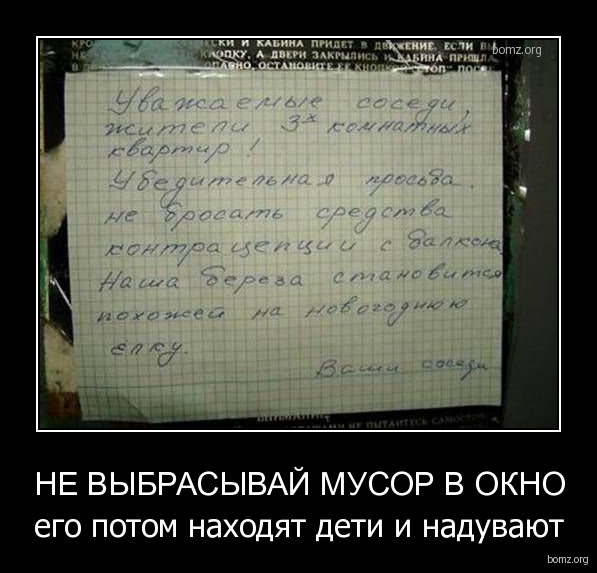 КРО СКИ И КАБИНА ПРИДЕТ В ДВИЖЕНИЕ. ЕСЛИ ВЫ
bomz.org
КНОПКУ, А ДВЕРИ ЗАКРЫЛИСЬ И КАБИНА ПРИШЛА
ОСТАНОВИТЕ ЕЕ КНОПКОЙ "СТОП"
Уважаемые соседи,
жители 3х комнатных
квартир!
Убедительная просьба
не бросать средства
контрацепции с балкона
Наша береза становится
похожей на новогоднюю
ёлку.
Ваши соседи
НЕ ПЫТАЙТЕСЬ
НЕ ВЫБРАСЫВАЙ МУСОР В ОКНО
его потом находят дети и надувают
bomz.org